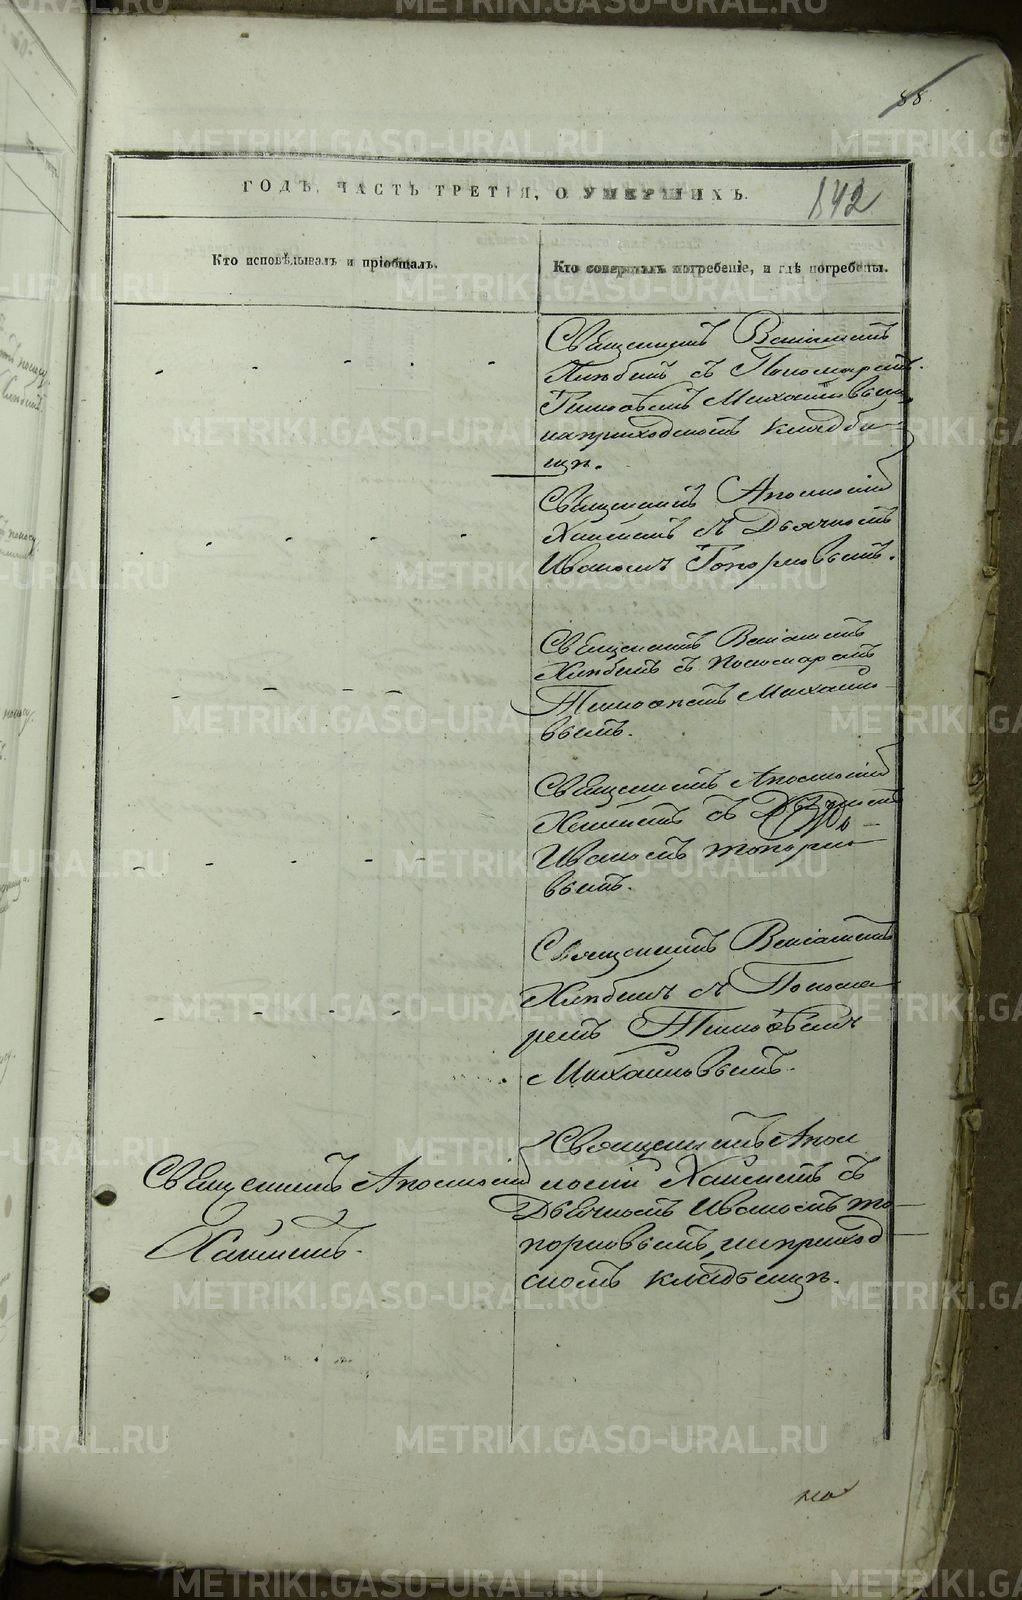 88.
ГОДЪ, ЧАСТЬ ТРЕТІЯ, О УМЕРШИХЪ.
142
Кто исповѣдывалъ и пріобщалъ.
Кто совершалъ погребеніе, и гдѣ погребены.
Священникъ Веніаминъ
Хлѣбинъ съ Пономаремъ
Тимоѳеемъ Михайловымъ
на приходскомъ кладби
щѣ.
Священникъ Аполлоній
съ Дьячкомъ
Иваномъ Топорковымъ.
Священникъ Веніаминъ
Хлѣбинъ съ пономаремъ
Тимоѳеемъ Михайло
вымъ.
Священникъ Аполлоній
съ Дьячкомъ
Иваномъ Топорко
вымъ.
Священникъ Веніаминъ
Хлѣбинъ съ Понома
ремъ Тимоѳеемъ
Михайловымъ.
Священникъ Апол
лоній съ
Дьячкомъ Иваномъ То
порковымъ, на приход
скомъ кладбищѣ.
Священникъ Аполлоній
METRIKI.GASO-URAL.RU